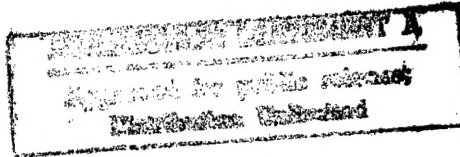 DISTRIBUTION STATEMENT A
Approved for public release;
Distribution Unlimited